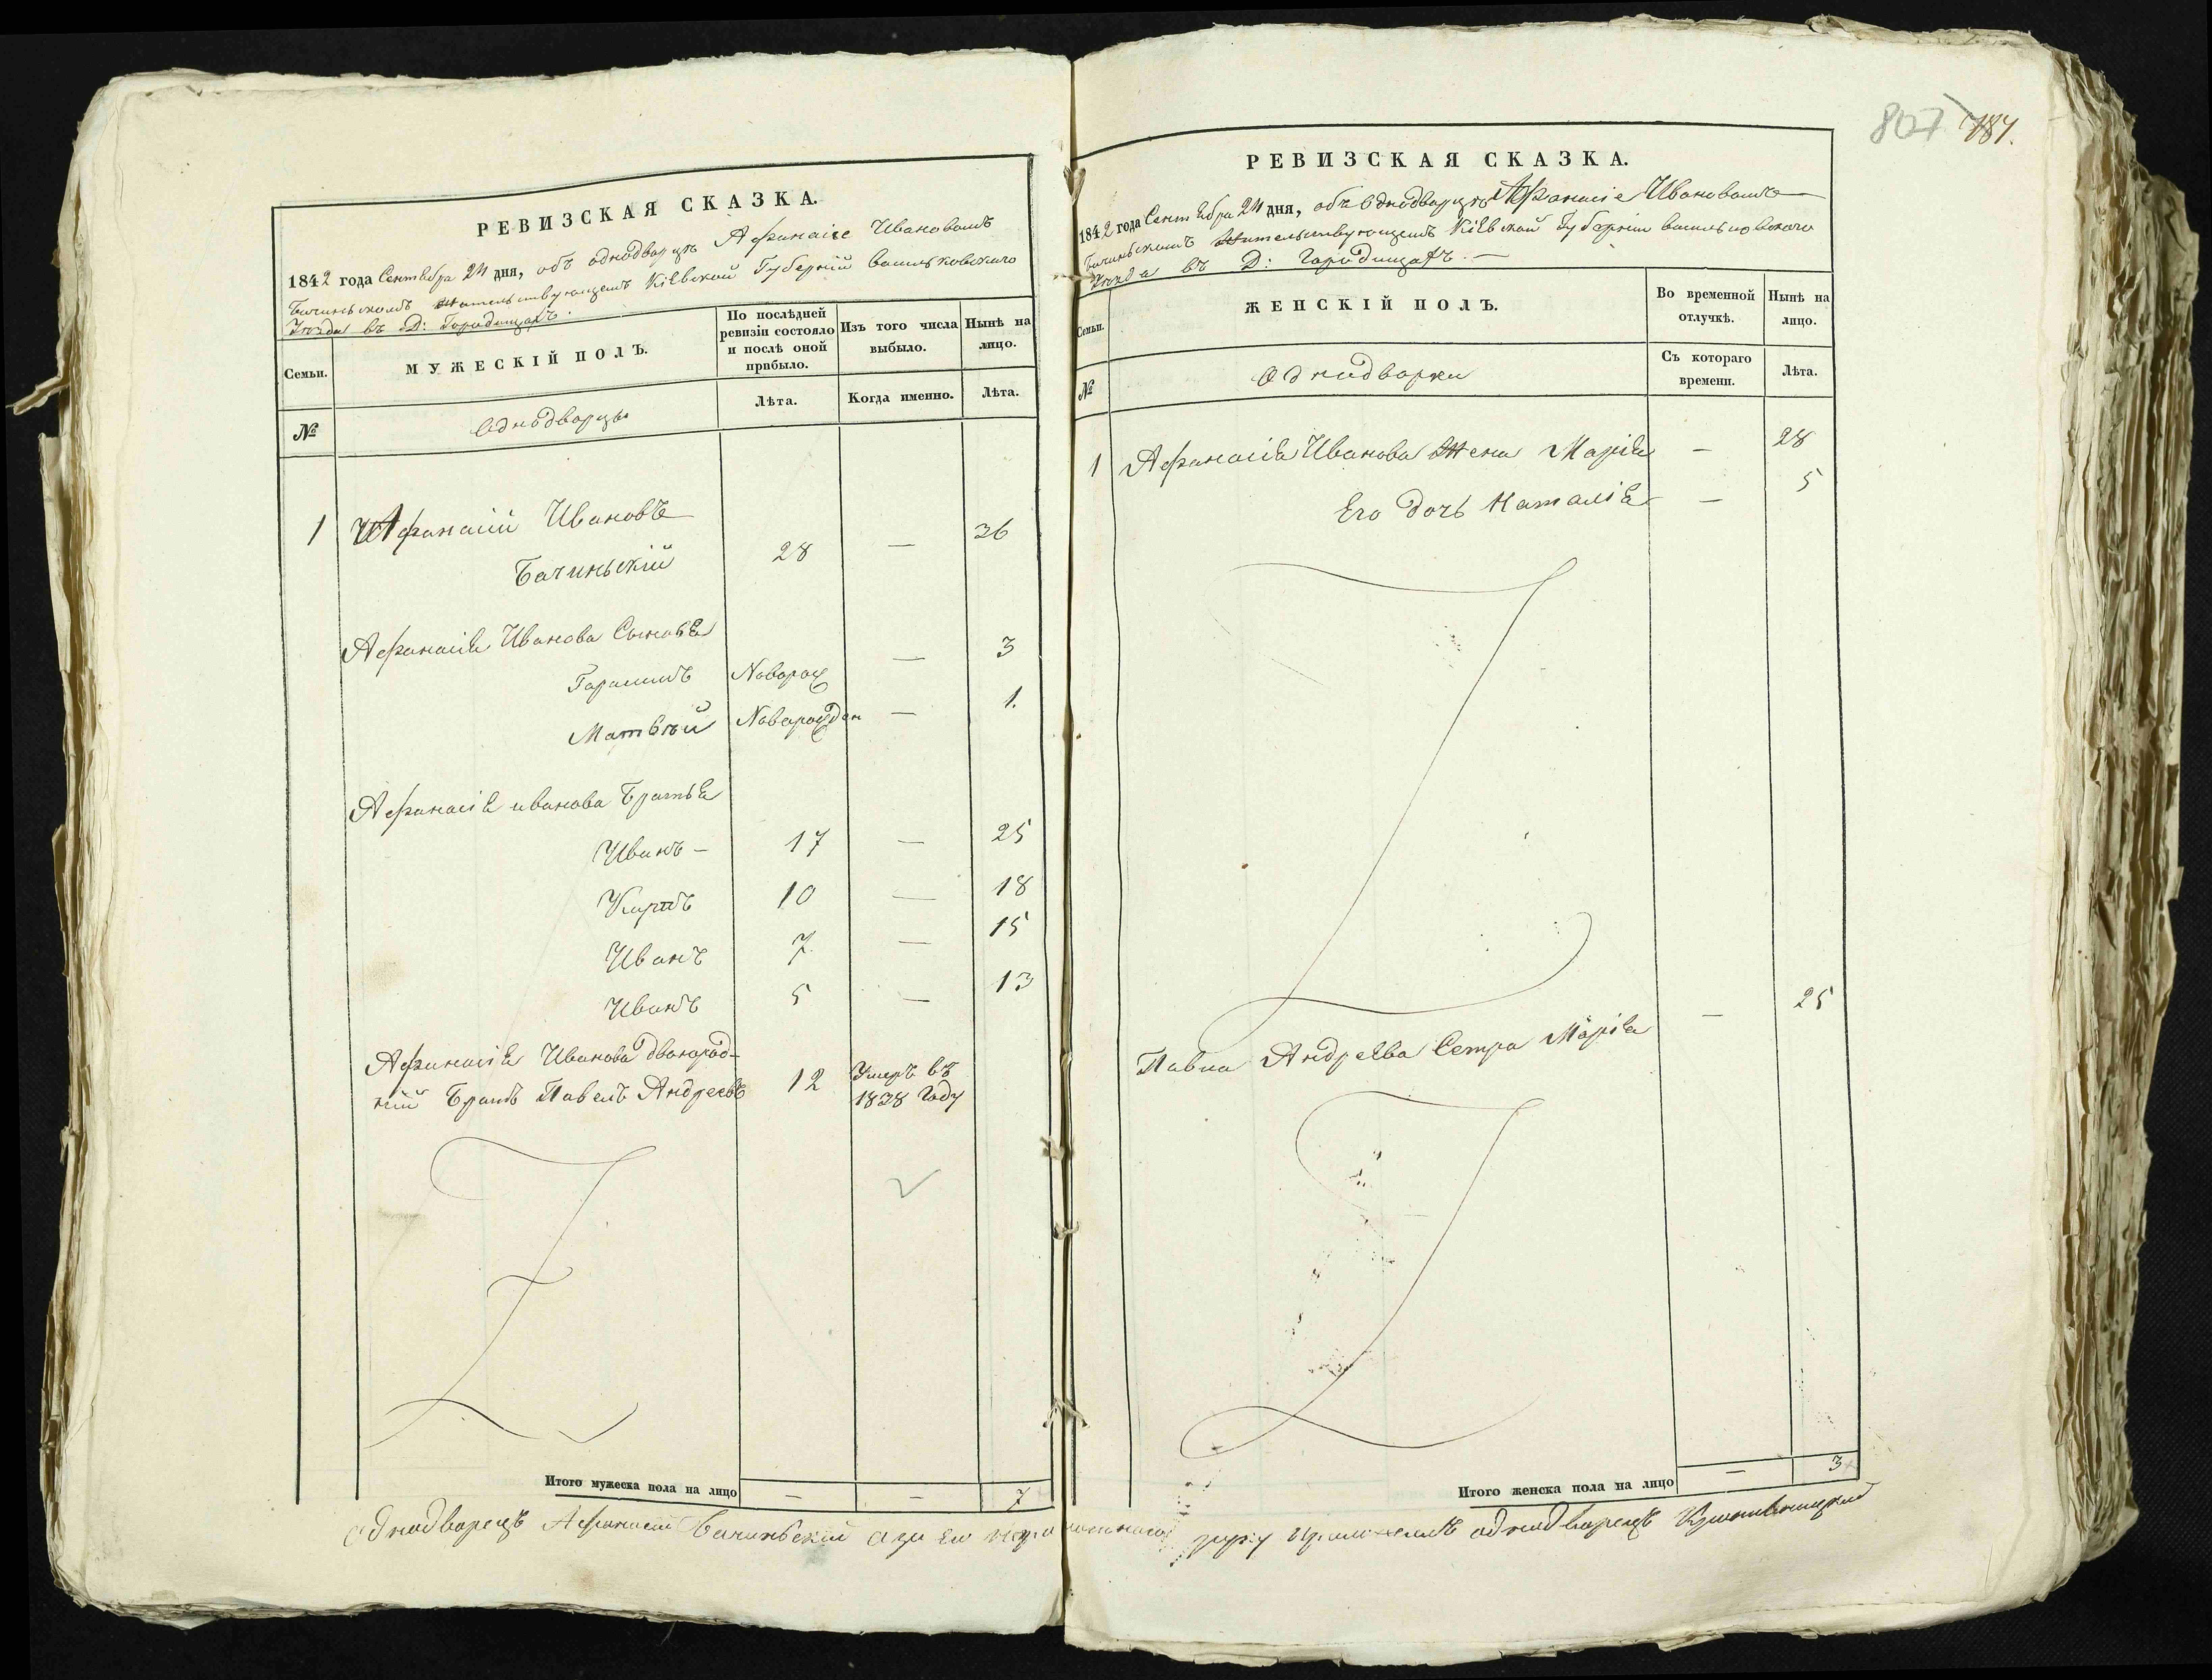 РЕВИЗСКАЯ СКАЗКА.
1842 года Сентебра 24 дня, объ однодворцъ Афанасіе Ивановомъ
Бачиньскомъ Жительствующемъ Кіевской Губерніи васильковского
Уѣзда въ Д: Городищахъ.
Семьи.
МУЖЕСКІЙ ПОЛЪ.
По послѣдней
ревизіи состояло
и послѣ оной
прибыло.
Изъ того числа
выбыло.
Нынѣ на
лицо.
№
Однодворцы
Лѣта.
Когда именно.
Лѣта.
1 Афанасій Ивановъ
Бачиньскій 28 — 36
Афанасіе Иванова Сыновье
Новорож — 3
Матвѣй Новорожден — 1.
Афанасіе иванова Братье
Иванъ — 17 — 25
10 — 18
Иванъ 7 — 15
Иванъ 5 — 13
Афанасіе Иванова двоюрод-
ній Братъ Павелъ Андреевъ 12 Умеръ въ
1838 Году
Итого мужеска пола на лицо — — 7
Однодворецъ Афанасій Бачиньскій а за его
807 784.
РЕВИЗСКАЯ СКАЗКА.
1842 года Сентебра 24 дня, объ Однодворцъ Афанасіе Ивановомъ
Бачиньскомъ Жительствующемъ Кіевской Губерніи васильковского
Уѣзда въ Д: Городищахъ. —
Семьи.
ЖЕНСКІЙ ПОЛЪ.
Во временной
отлучкѣ.
Нынѣ на
лицо.
№
Однодворки
Съ котораго
времени.
Лѣта.
1 Афанасіе Иванова Жена Маріе — 28
Его дочь Наталіе — 5
Павла Андреева Сетра Маріе — 25
Итого женска пола на лицо — 3
руку приложилъ однодворецъ